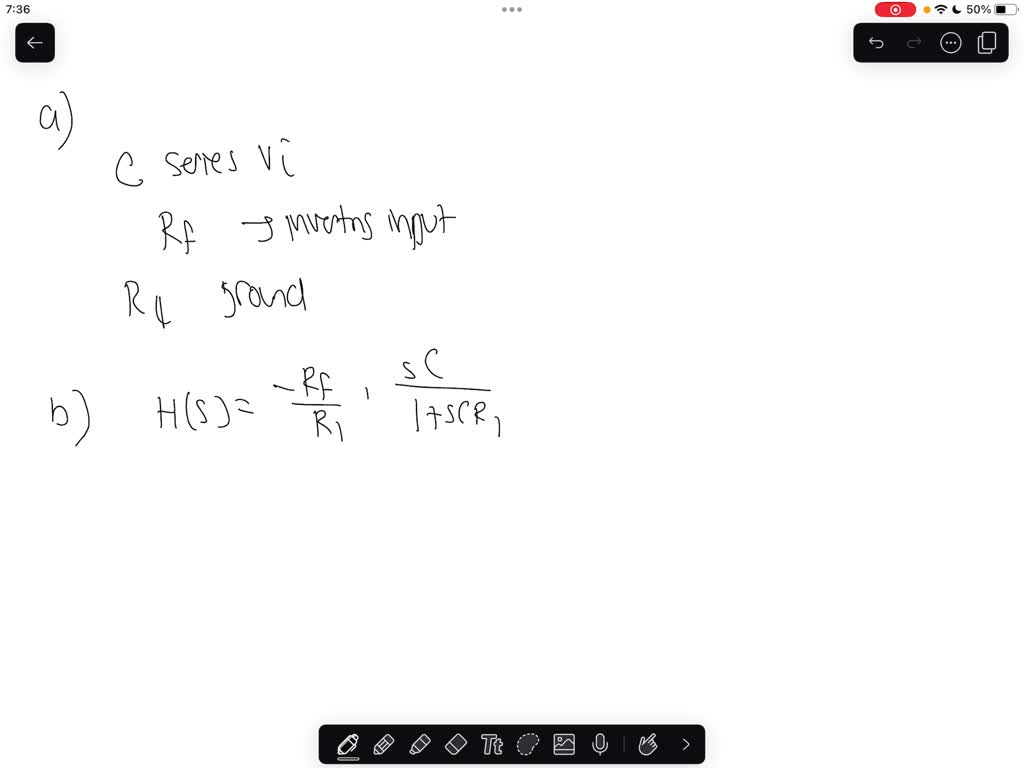 7:36
50%
a)
C series Vi
Rf → inverting input
R1 ground
b) H(s) = -Rf/R1 · sC/1+sCR1
Tt